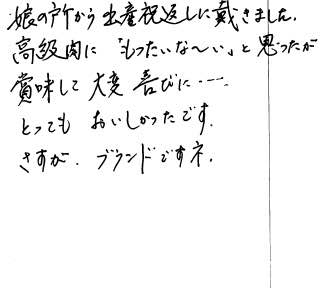 娘の所から出産祝返しに戴きました。
高級肉に「もったいな〜い」と思ったが
賞味して大変喜びに……
とっても おいしかったです。
さすが、ブランドですネ。